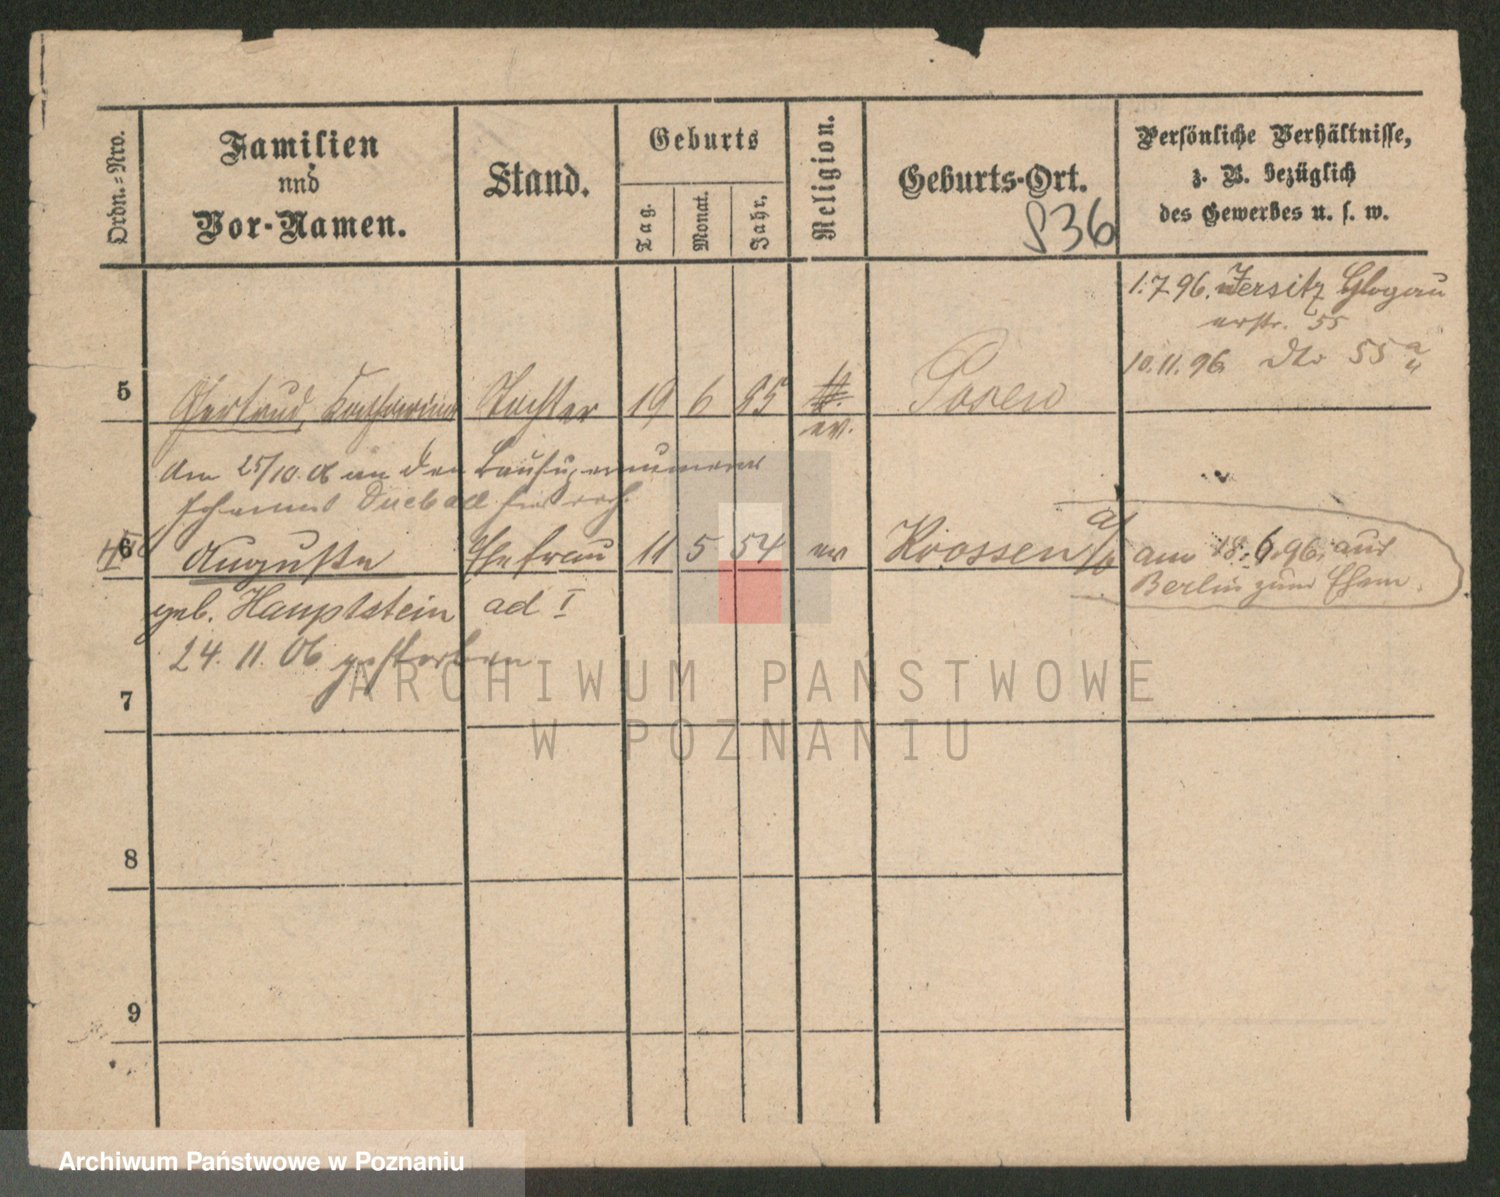 Ordn.-Nro.
Familien
und
Vor-Namen.
Stand.
Geburts
Tag.
Monat.
Jahr.
Religion.
Geburts-Ort.
836
Persönliche Verhältnisse,
z. B. bezüglich
des Gewerbes u. s. w.
1.7.96. Jersitz Glogau
erstr. 55
10.11.96. dto 55 a
5 Gertrud, Katharina Tochter 19 6 85 Posen
ev.
Am 25/10.06 an den
Johannes
6 Auguste Ehefrau 11 5 54 ev Krossen a/O am 18.6.96. aus
Berlin zum Ehem.
geb. Hauptstein ad I
24.11.06 gestorben
7
8
9
ARCHIWUM PAŃSTWOWE
W POZNANIU
Archiwum Państwowe w Poznaniu